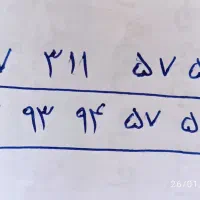 ۳۱۱ ۵۷
۹۳ ۹۴ ۵۷
26/01